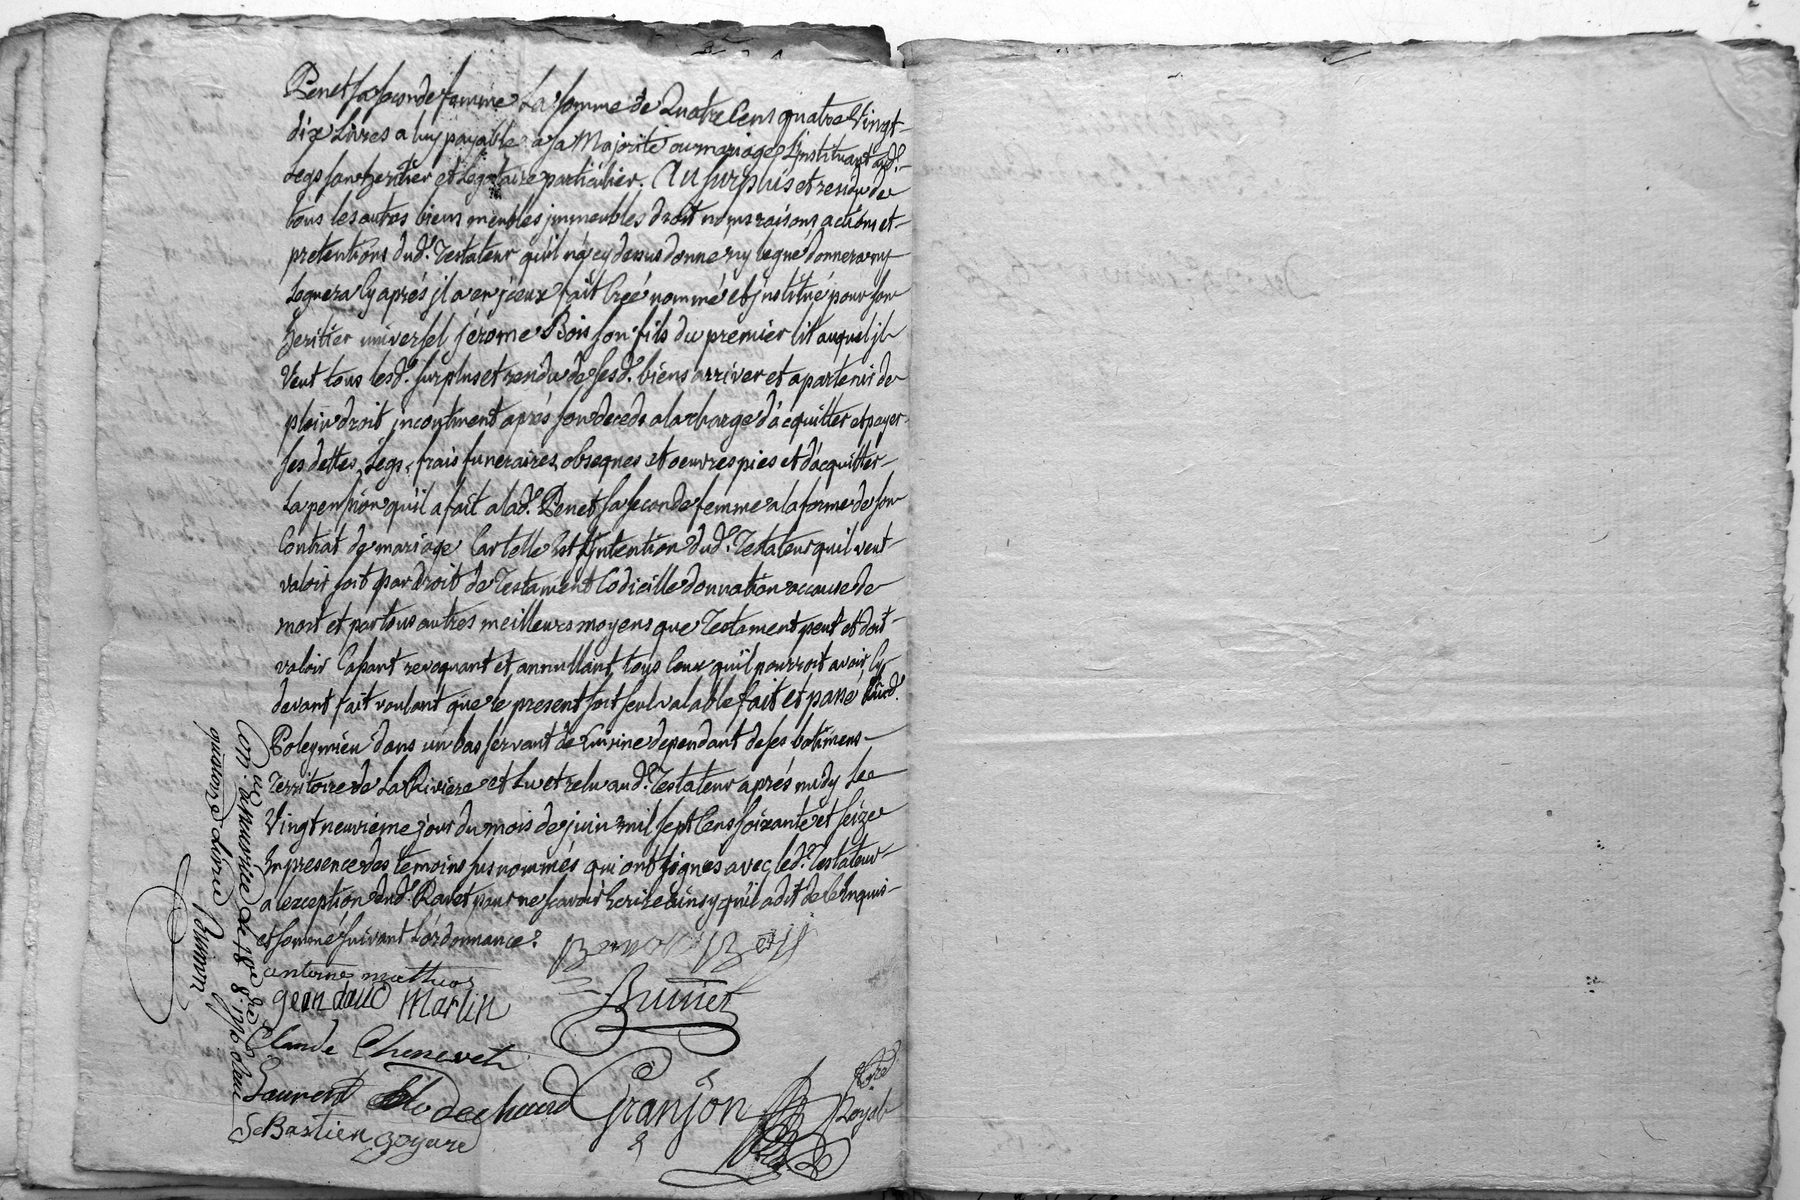 Penet sa seconde femme La somme de Quatre Cens quatre Vingt
dix Livres a luy payable a sa Majorité ou mariage L'instituant aud.
Legs son heritier et Legataire particulier. Au surplus et residu de
tous les autres biens meubles immeubles droit noms raisons actions et
pretentions dud. Testateur qu'il n'a cy dessus donne ny legué donnera ny
Leguera Cy aprés il a en jceux fait Creé nommé et jnstitué pour son
heritier universel jérome Bois son fils du premier lit auquel jl
Veut tous lesd. surplus et residu de sesd. biens arriver et apartenir de
plein droit jncontinent aprés son deceds a la charge d'acquitter et payer
ses dettes, Legs, frais funeraires, obseques et oeuvres pies et d'acquitter
La pension qu'il a fait a lad. Penet sa seconde femme a la forme de son
Contrat de mariage Car telle Est L'jntention dud. Testateur qu'il veut
valoir soit par droit de Testament Codicille donnation a cause de
mort et par tous autres meilleurs moyens que Testament peut et doit
valoir Cassant revoquant et annullant tous Ceux qu'il pourroit avoir Cy
devant fait voulant que le present soit seul valable fait et passé aud.
Poleymieu dans un bas servant de Cuisine dependant de ses batimens
Territoire de La Riviere et Lu et relu aud. Testateur aprés midy Le
Vingt neuvieme jour du mois de juin mil sept Cens soixante et seize
En presence des temoins sus nommés qui ont signes avec led. Testateur
a l'exception dud. Ravet pour ne scavoir Ecrire ainsy qu'il a dit de ce Enquis
et sommé suivant L'ordonnance.
Benoit Bois
antoine mathieu
jean claud Martin
Brunet
Claude Chenevet
Laurent Blodechaud
Granjon
Nore
Royal
SeBastien goyard
quatorze livres
Brunon